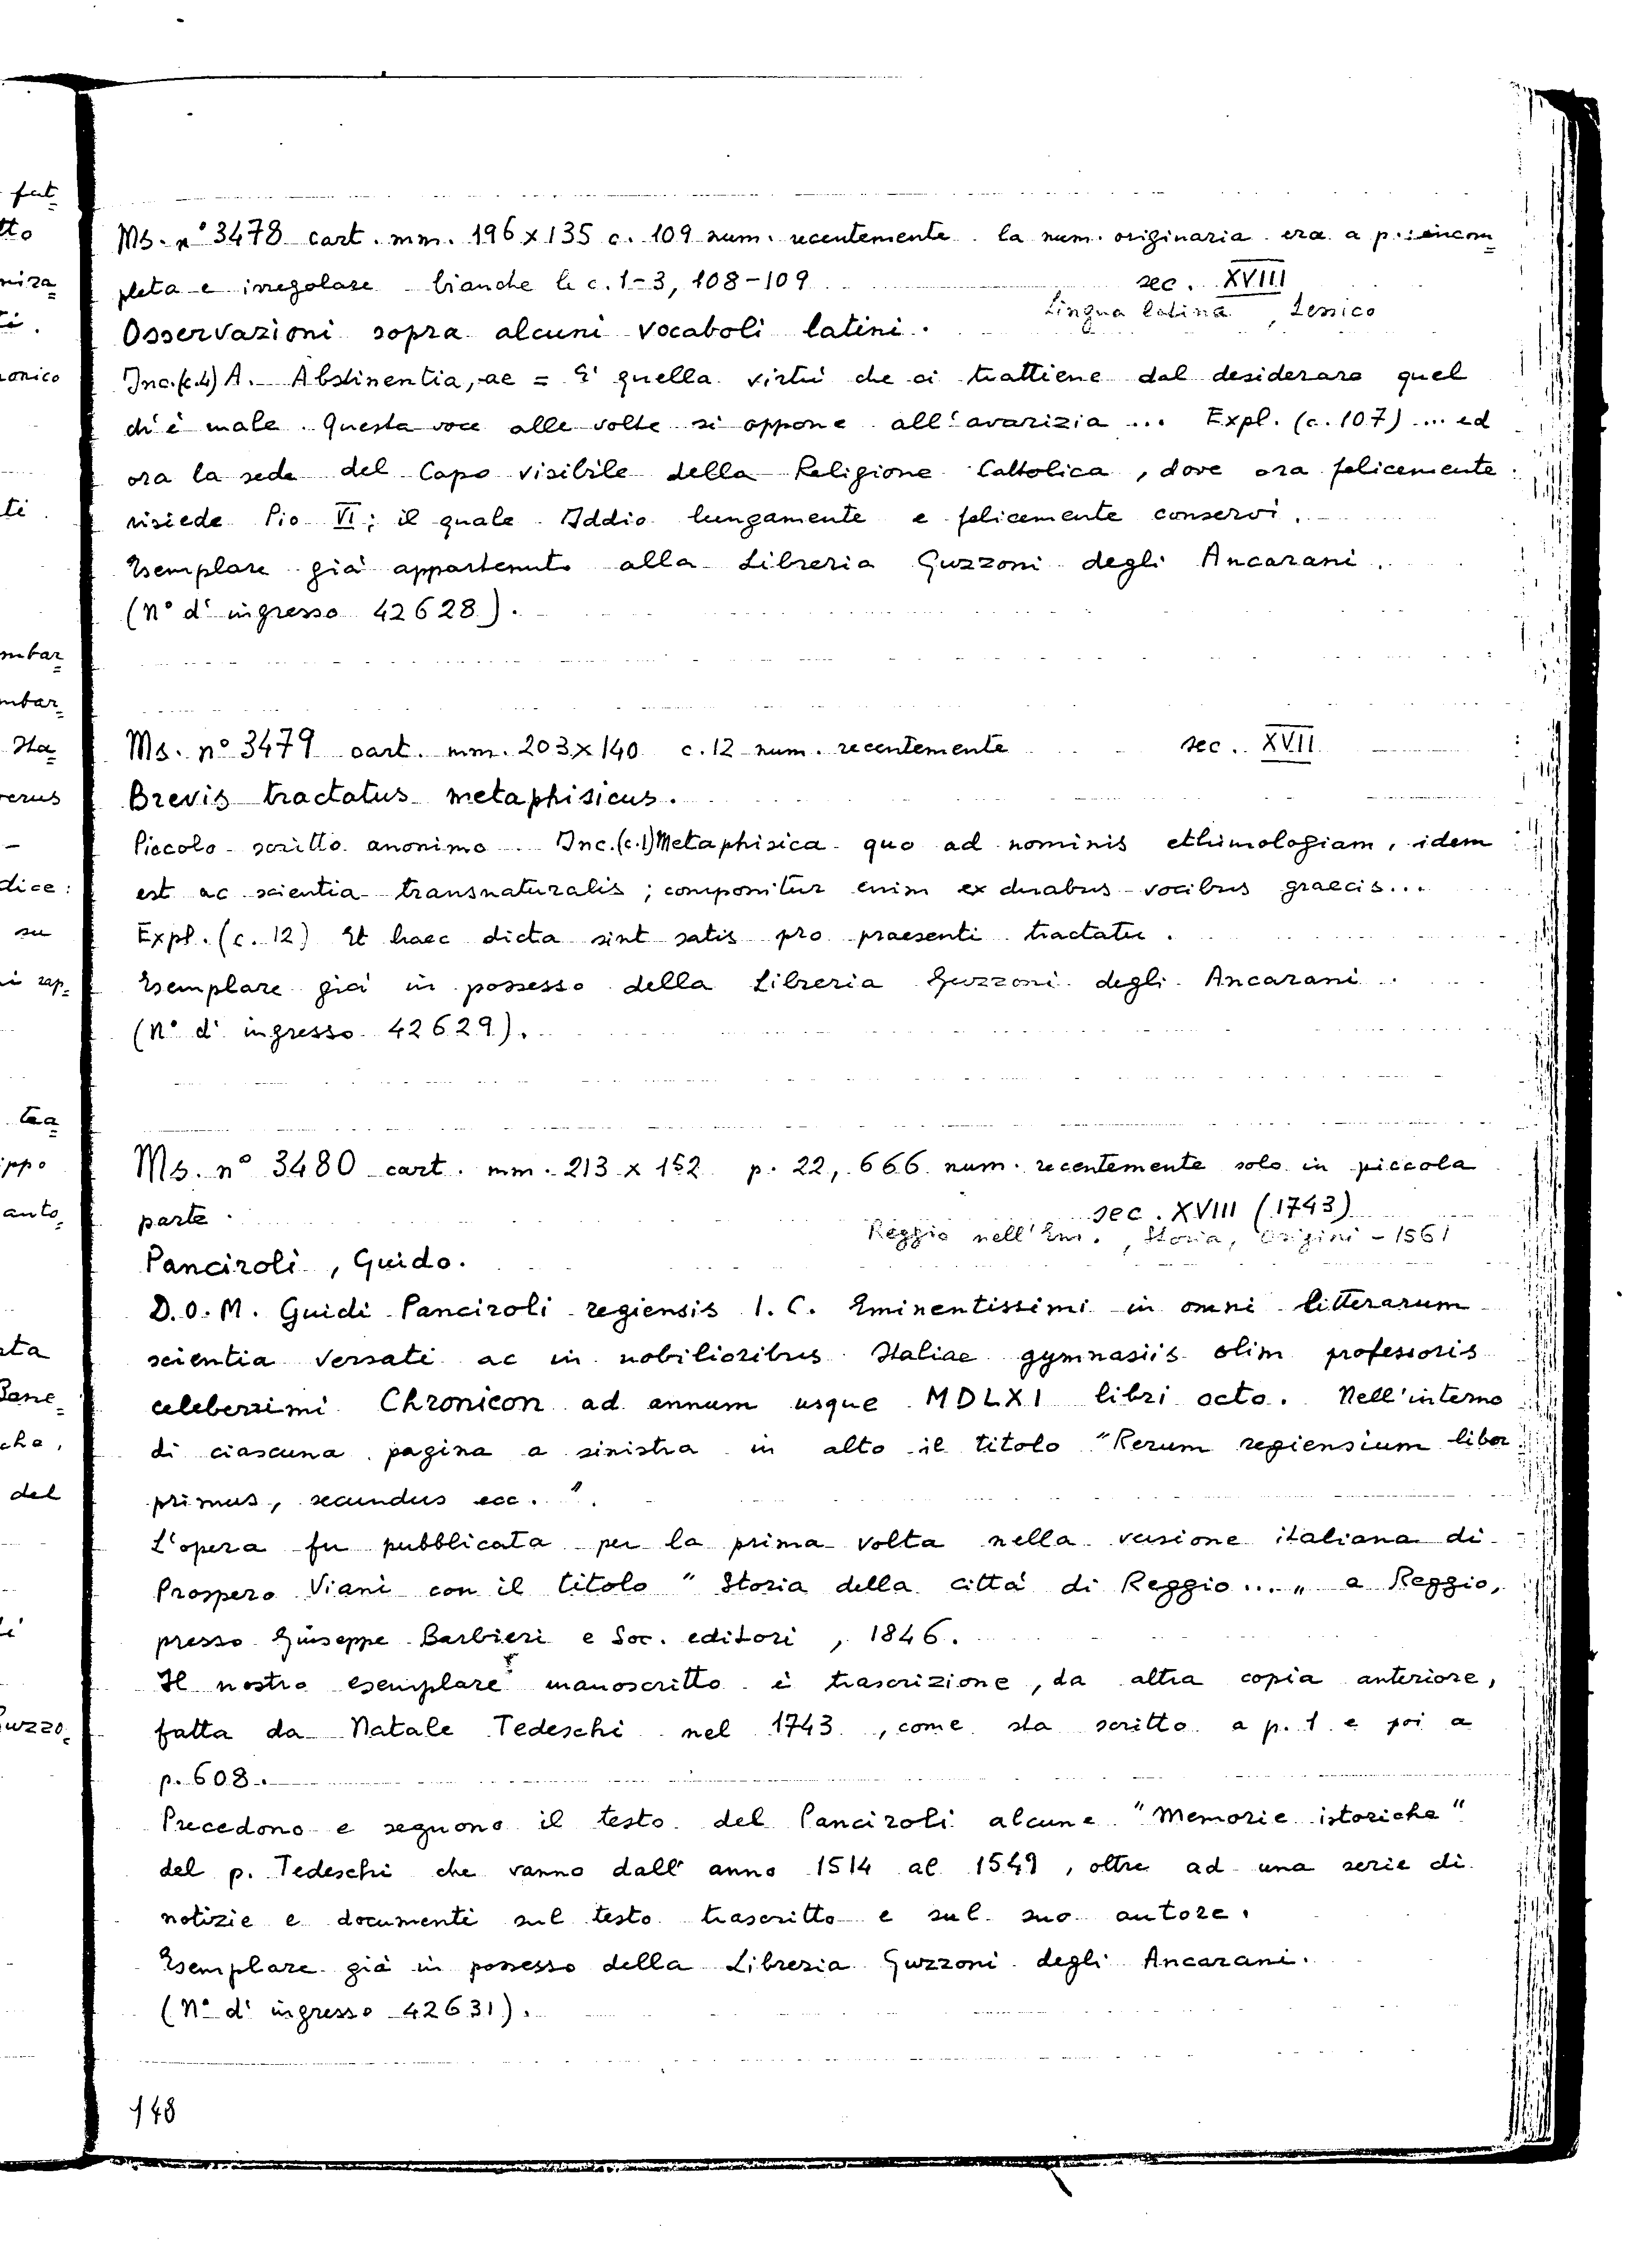 Ms. n° 3478 cart. mm. 196 x 135 c. 109 num. recentemente. la num. originaria era a p. incom=
pleta e irregolare bianche le c. 1-3, 108-109 sec. XVIII
Lingua latina, Lessico
Osservazioni sopra alcuni vocaboli latini.
Inc. (c.4) A. Abstinentia, ae = E' quella virtù che ci trattiene dal desiderare quel
ch'è male. Questa voce alle volte si oppone all'avarizia ... Expl. (c. 107) ... ed
ora la sede del Capo visibile della Religione Cattolica, dove ora felicemente
risiede Pio VI; il quale Iddio lungamente e felicemente conservi.
Esemplare già appartenuto alla Libreria Guzzoni degli Ancarani.
(N° d'ingresso 42628).
Ms. n° 3479 cart. mm. 203 x 140 c. 12 num. recentemente sec. XVII
Brevis tractatus metaphisicus.
Piccolo scritto anonimo. Inc. (c.1) Metaphisica quo ad nominis ethimologiam, idem
est ac scientia transnaturalis; componitur enim ex duabus vocibus graecis...
Expl. (c. 12) Et haec dicta sint satis pro praesenti tractatu.
Esemplare già in possesso della Libreria Guzzoni degli Ancarani.
(N° d'ingresso 42629).
Ms. n° 3480 cart. mm. 213 x 152 p. 22, 666 num. recentemente solo in piccola
parte. sec. XVIII (1743)
Reggio nell'Em., Storia, Origini - 1561
Panciroli, Guido.
D.O.M. Guidi Panciroli regiensis I. C. Eminentissimi in omni litterarum
scientia versati ac in nobilioribus Italiae gymnasiis olim professoris
celeberrimi Chronicon ad annum usque MDLXI libri octo. Nell'interno
di ciascuna pagina a sinistra in alto il titolo "Rerum regiensium liber
primus, secundus ecc.".
L'opera fu pubblicata per la prima volta nella versione italiana di
Prospero Viani con il titolo "Storia della città di Reggio..." a Reggio,
presso Giuseppe Barbieri e Soc. editori, 1846.
Il nostro esemplare manoscritto è trascrizione, da altra copia anteriore,
fatta da Natale Tedeschi nel 1743, come sta scritto a p. 1 e poi a
p. 608.
Precedono e seguono il testo del Panciroli alcune "Memorie istoriche"
del p. Tedeschi che vanno dall'anno 1514 al 1549, oltre ad una serie di
notizie e documenti sul testo trascritto e sul suo autore.
Esemplare già in possesso della Libreria Guzzoni degli Ancarani.
(N° d'ingresso 42631).
148